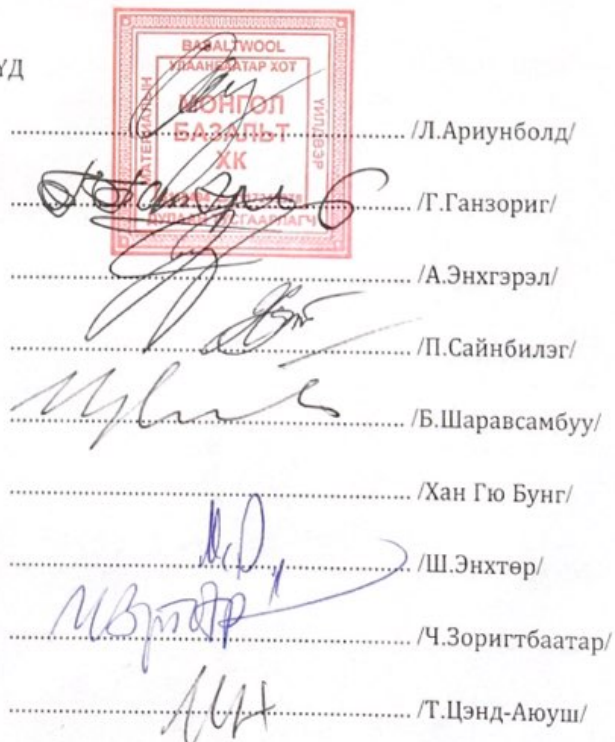 ҮД
BASALTWOOL
УЛААНБААТАР ХОТ
МАТЕРИАЛЫН
МОНГОЛ
БАЗАЛЬТ
ХК
ҮЙЛДВЭР
ДУЛААН ТУСГААРЛАГЧ
/Л.Ариунболд/
/Г.Ганзориг/
/А.Энхгэрэл/
/П.Сайнбилэг/
/Б.Шаравсамбуу/
/Хан Гю Бунг/
/Ш.Энхтөр/
/Ч.Зоригтбаатар/
/Т.Цэнд-Аюуш/